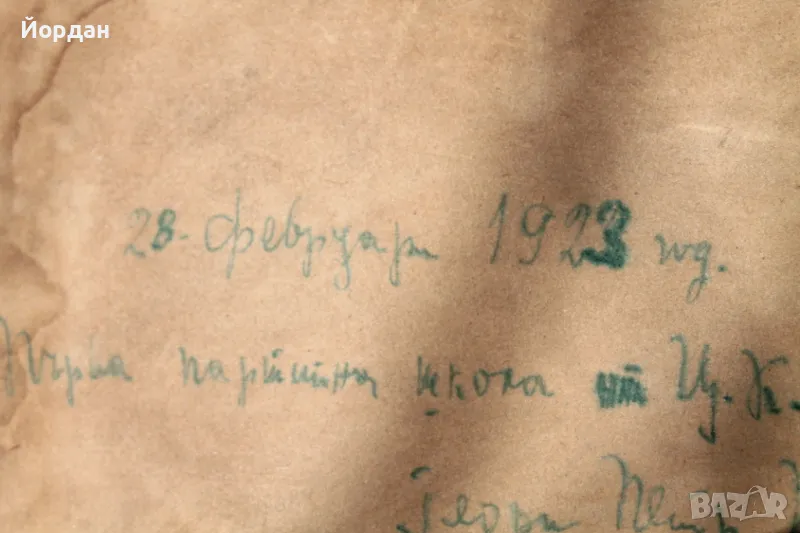 Йордан
28. февруари 1923 год.
Първа партийна школа Ц.К.
Георги Петр
BAZAR